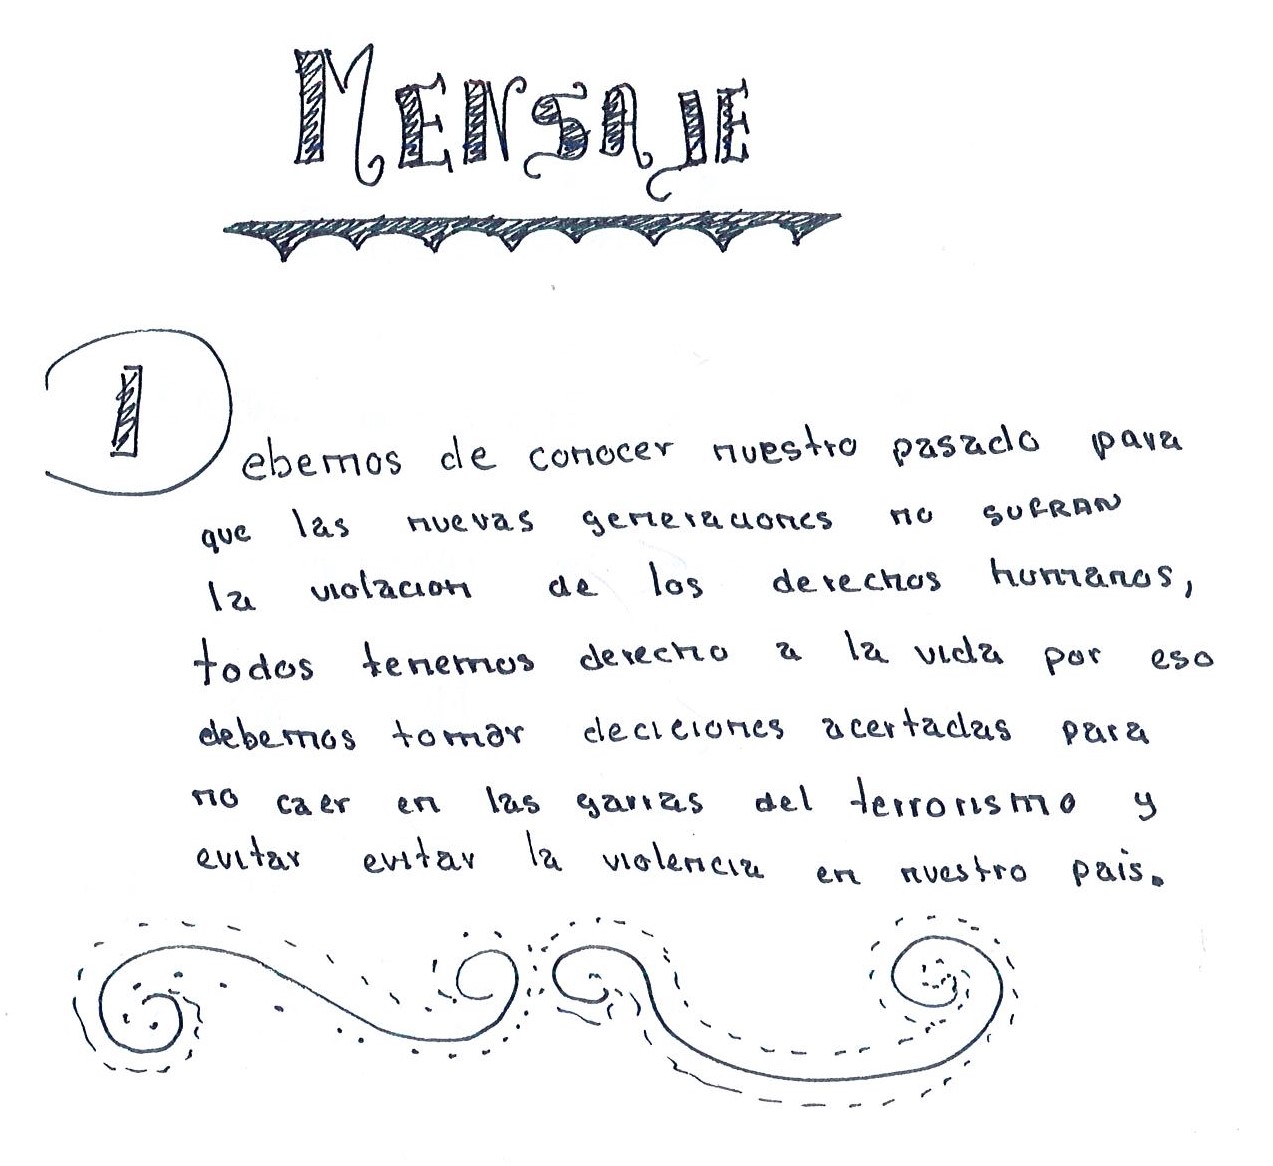 MENSAJE
Debemos de conocer nuestro pasado para
que las nuevas generaciones no SUFRAN
la violacion de los derechos humanos,
todos tenemos derecho a la vida por eso
debemos tomar deciciones acertadas para
no caer en las garras del terrorismo y
evitar evitar la violencia en nuestro pais.